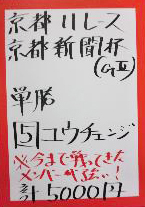 京都11レース
京都新聞杯
(GⅡ)
単勝
5 ユウチェンジ
※今まで戦ってきた
メンバーが強い!
計5000円